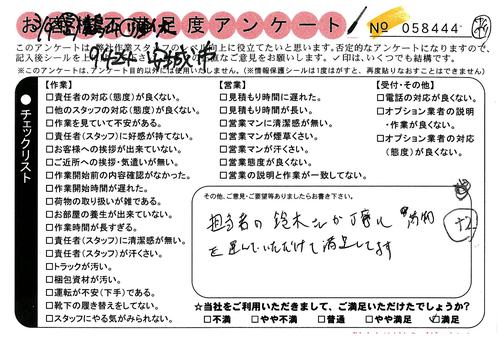 お客様不満足度アンケート
№ 058444
このアンケートは弊社作業スタッフのレベル向上に役立てたいと思います。否定的なアンケートになりますので、
記入後シールを上
直なご意見をお願いします。✓印は、いくつでも結構です。
※このアンケートは、アンケート目的以外には使用いたしません。(※情報保護シールは1度はがすと、再度貼りなおすことはできません)
チェックリスト
【作業】
□責任者の対応(態度)が良くない。
□他のスタッフの対応(態度)が良くない。
□作業を見ていて不安がある。
□責任者(スタッフ)に好感が持てない。
□お客様への挨拶が出来ていない。
□ご近所への挨拶・気遣いが無い。
□作業開始前の内容確認がなかった。
□作業開始時間が遅れた。
□荷物の取り扱いが雑である。
□お部屋の養生が出来ていない。
□作業時間が長すぎる。
□責任者(スタッフ)に清潔感が無い。
□責任者(スタッフ)が汗くさい。
□トラックが汚い。
□梱包資材が汚い。
□運転が不安(下手)である。
□靴下の履き替えをしてない。
□スタッフにやる気がみられない。
【営業】
□見積もり時間に遅れた。
□見積もり時間が長い。
□営業マンに清潔感が無い。
□営業マンが煙草くさい。
□営業マンが汗くさい。
□営業態度が良くない。
□営業の説明と作業が一致してない。
【受付・その他】
□電話の対応が良くない。
□オプション業者の説明
・作業が良くない。
□オプション業者の対応
(態度)が良くない。
その他、ご意見・ご要望等ありましたらお書き下さい。
担当者の鈴木さんが丁寧に 荷物
を運んでいただけて満足してます
☆当社をご利用いただきまして、ご満足いただけたでしょうか?
□不満 □やや不満 □普通 □やや満足 ✓満足